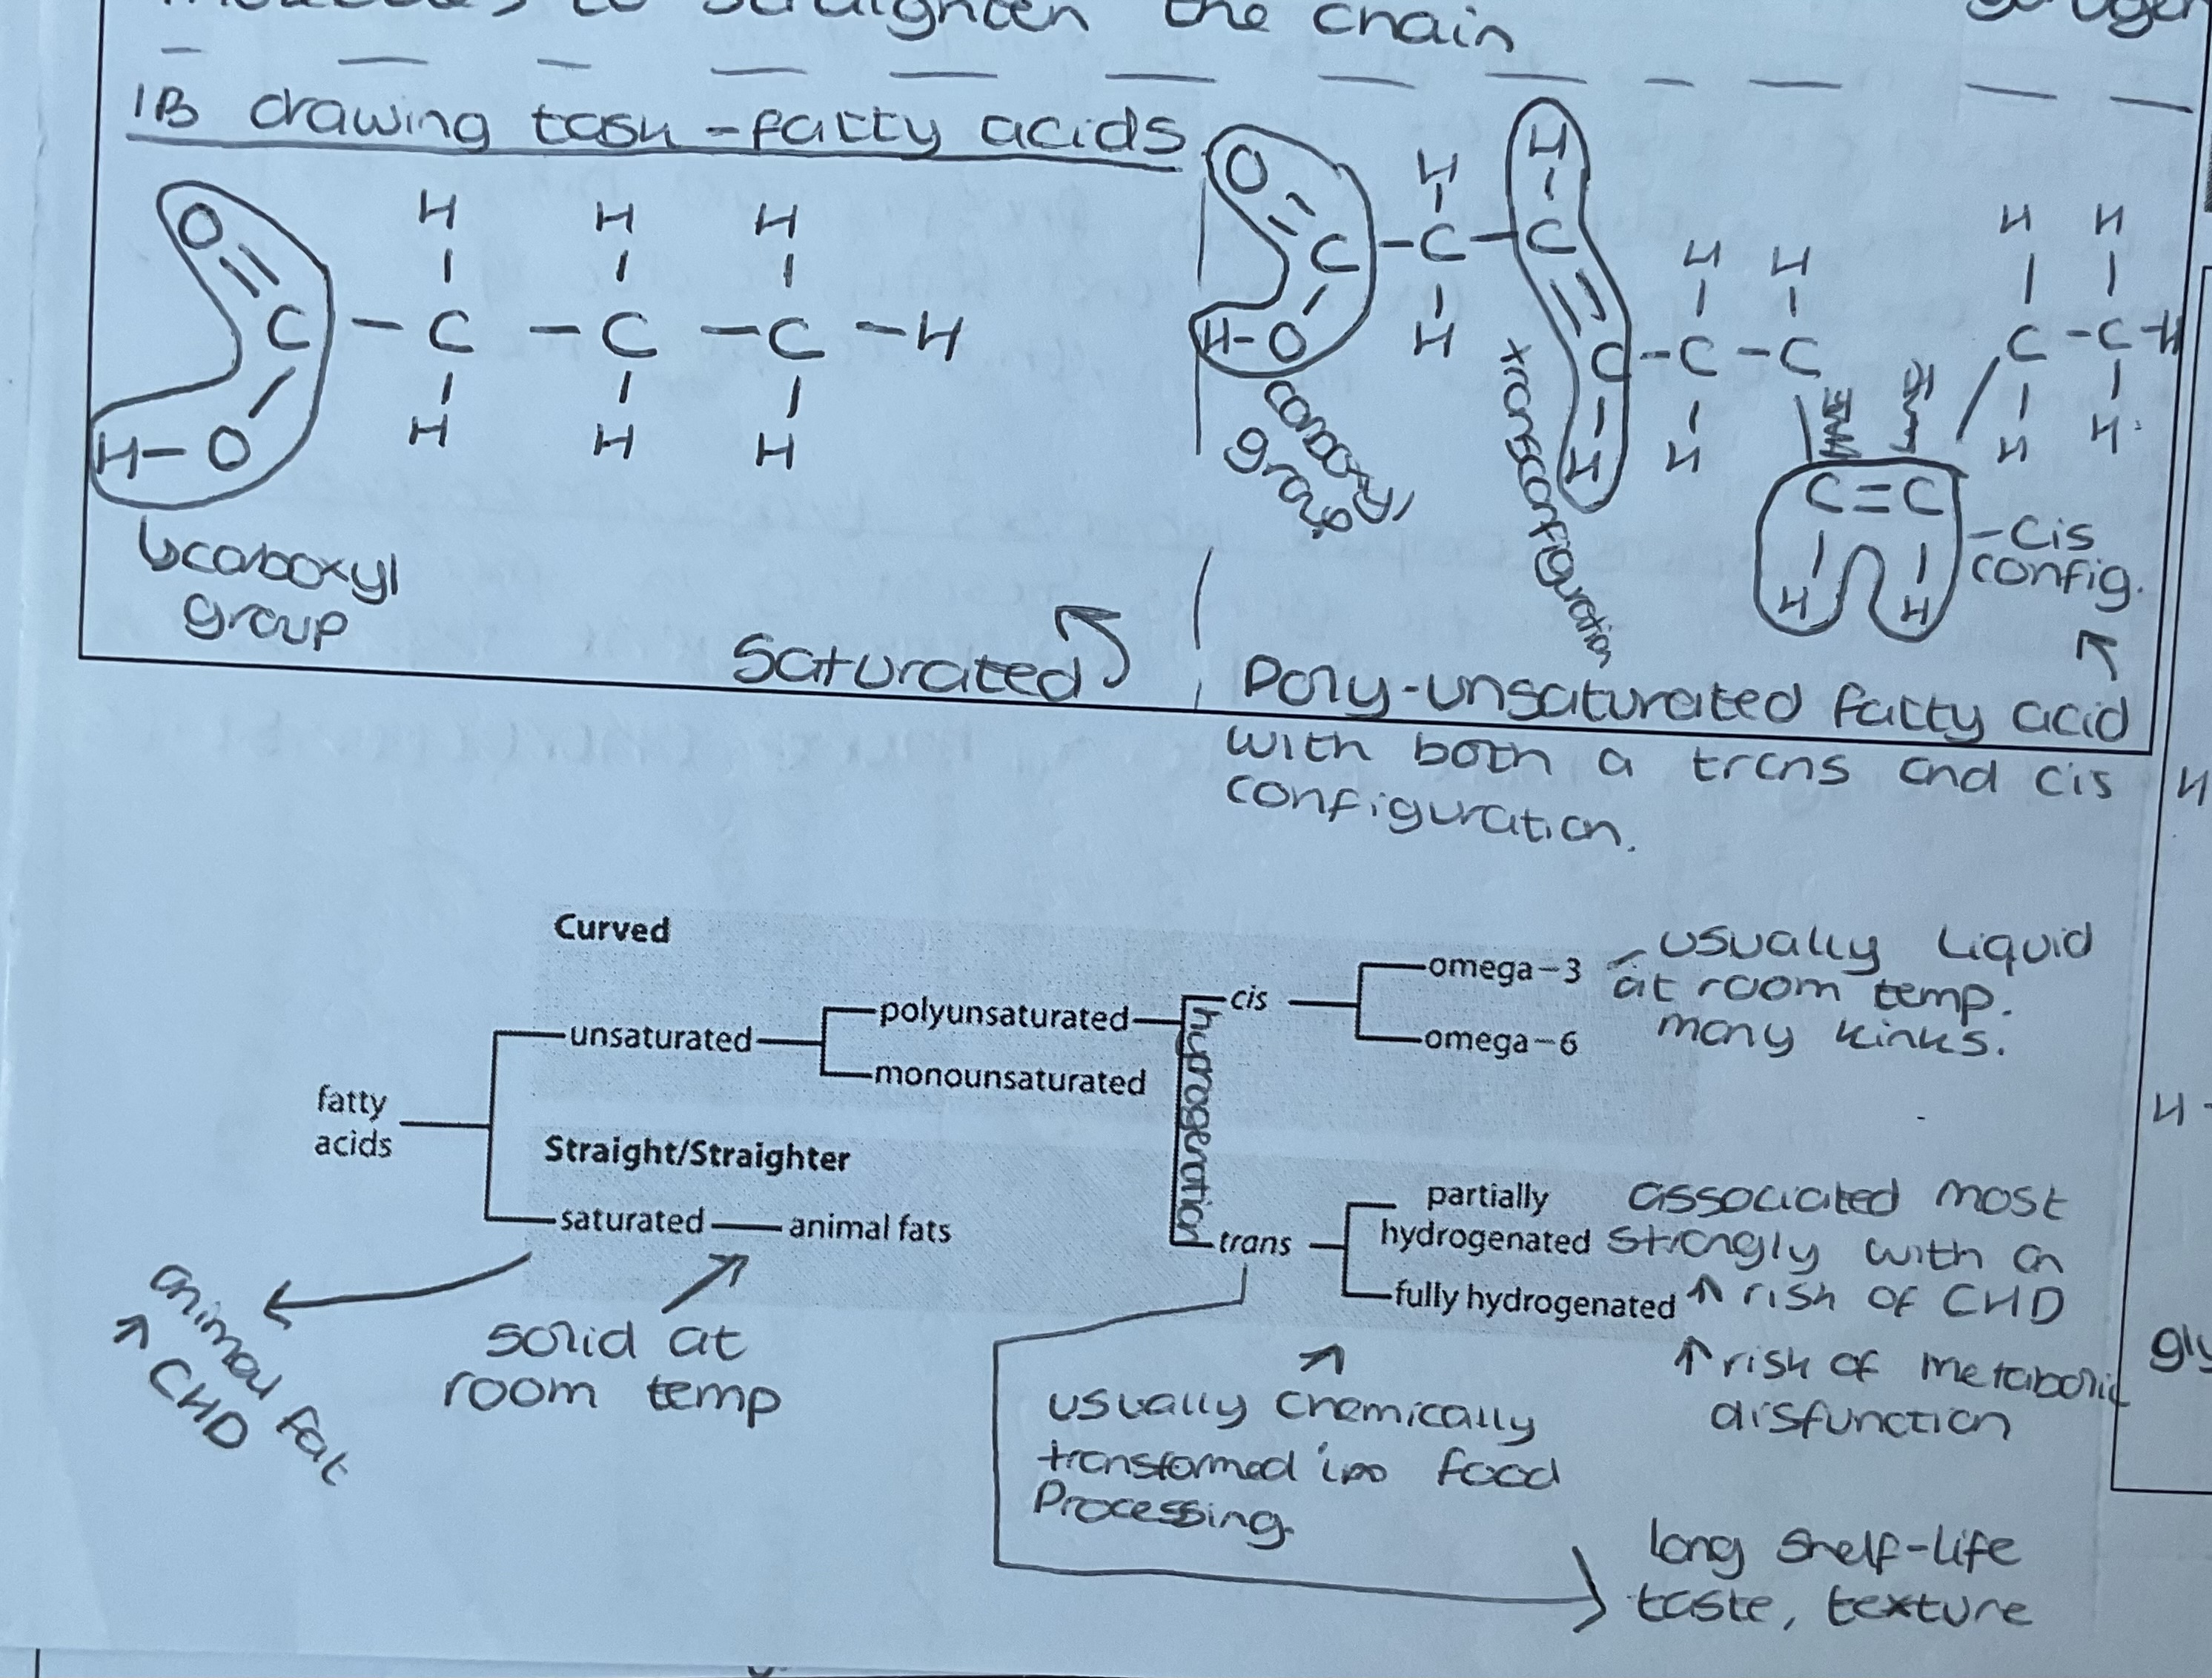 to straighten the chain
IB drawing task - fatty acids
O
H H H
C - C - C - C - H
H - O
H H H
↳ carboxyl
group
Saturated
O = C - C - C
H H
H - O
H
carboxyl
group
C - C - C
H H
H H
transconfiguration
H H
C - C - H
H H
C = C
H H
- Cis
config.
Poly-unsaturated fatty acid
with both a trans and cis
configuration.
Curved
unsaturated
polyunsaturated
monounsaturated
hydrogenation
cis
omega-3
omega-6
- usually liquid
at room temp.
many kinks.
fatty
acids
Straight/Straighter
saturated
animal fats
trans
partially
hydrogenated
fully hydrogenated
associated most
strongly with an
↑ risk of CHD
↑ risk of metabolic
disfunction
animal fat
↑ CHD
solid at
room temp
usually chemically
transformed food
Processing.
long shelf-life
taste, texture
H
H -
gly